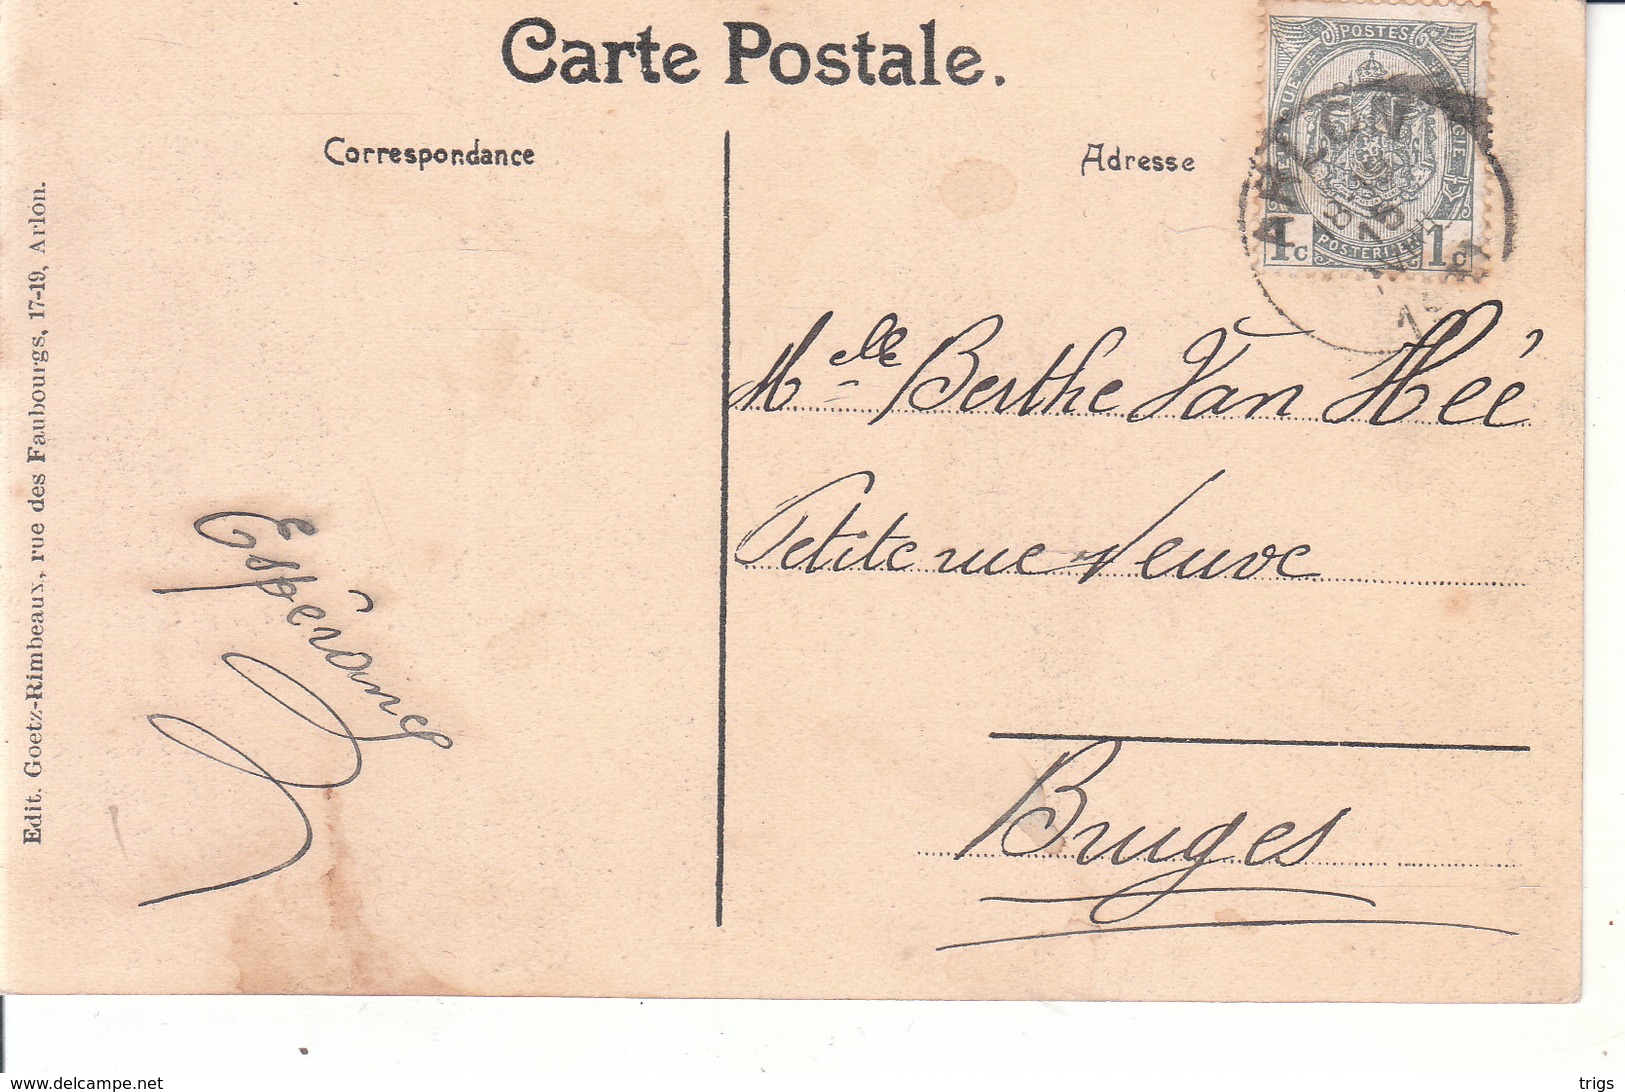 Carte Postale.
Correspondance
Adresse
POSTES
1c
1c
ARLON
Mlle Berthe Van Héé
Petite rue Neuve
Bruges
Espérance
Edit. Goetz-Rimbeaux, rue des Faubourgs, 17-19, Arlon.
www.delcampe.net
trigs